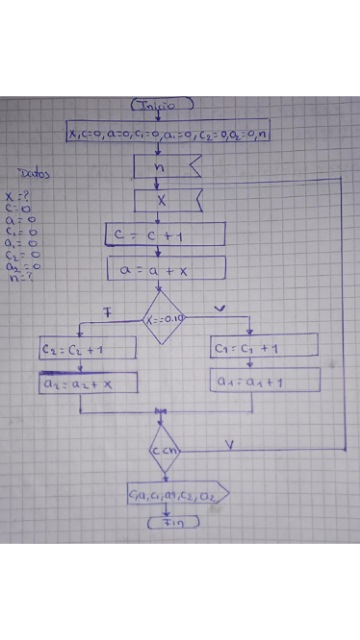 Inicio
x, c=0, a=0, c1=0, a1=0, c2=0, a2=0, n
n
Datos
x=?
c=0
a=0
c1=0
a1=0
c2=0
a2=0
n=?
x
c = c + 1
a = a + x
F
V
c2 = c2 + 1
c1 = c1 + 1
a2 = a2 + x
a1 = a1 + 1
V
c,a,c1,a1,c2,a2
Fin